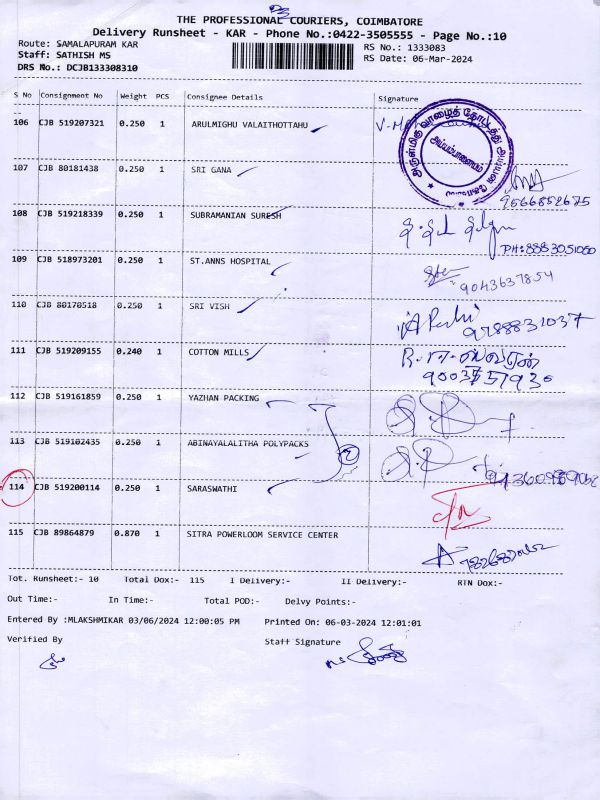 THE PROFESSIONAL COURIERS, COIMBATORE
Delivery Runsheet - KAR - Phone No.:0422-3505555 - Page No.:10
Route: SAMALAPURAM KAR
RS No.: 1333083
Staff: SATHISH MS
RS Date: 06-Mar-2024
DRS No.: DCJB133308310
S No Consignment No Weight PCS Consignee Details Signature
106 CJB 519207321 0.250 1 ARULMIGHU VALAITHOTTAHU
107 CJB 80181438 0.250 1 SRI GANA
9566852625
108 CJB 519218339 0.250 1 SUBRAMANIAN SURESH
PH: 8883051060
109 CJB 518973201 0.250 1 ST.ANNS HOSPITAL
9043637854
110 CJB 80170518 0.250 1 SRI VISH
9788831037
111 CJB 519209155 0.240 1 COTTON MILLS
112 CJB 519161859 0.250 1 YAZHAN PACKING
113 CJB 519102435 0.250 1 ABINAYALALITHA POLYPACKS
114 CJB 519200114 0.250 1 SARASWATHI
115 CJB 89864879 0.870 1 SITRA POWERLOOM SERVICE CENTER
Tot. Runsheet:- 10 Total Dox:- 115 I Delivery:- II Delivery:- RTN Dox:-
Out Time:- In Time:- Total POD:- Delvy Points:-
Entered By :MLAKSHMIKAR 03/06/2024 12:00:05 PM Printed On: 06-03-2024 12:01:01
Verified By Staff Signature